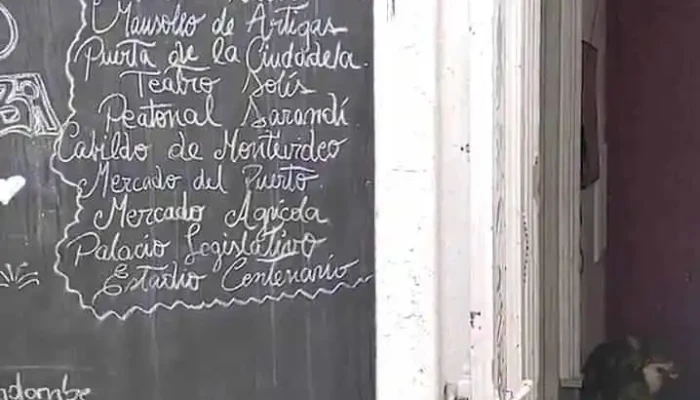 Mausoleo de Artigas
Puerta de la Ciudadela.
Teatro Solís
Peatonal Sarandí
Cabildo de Montevideo
Mercado del Puerto.
Mercado Agrícola
Palacio Legislativo
Estadio Centenario